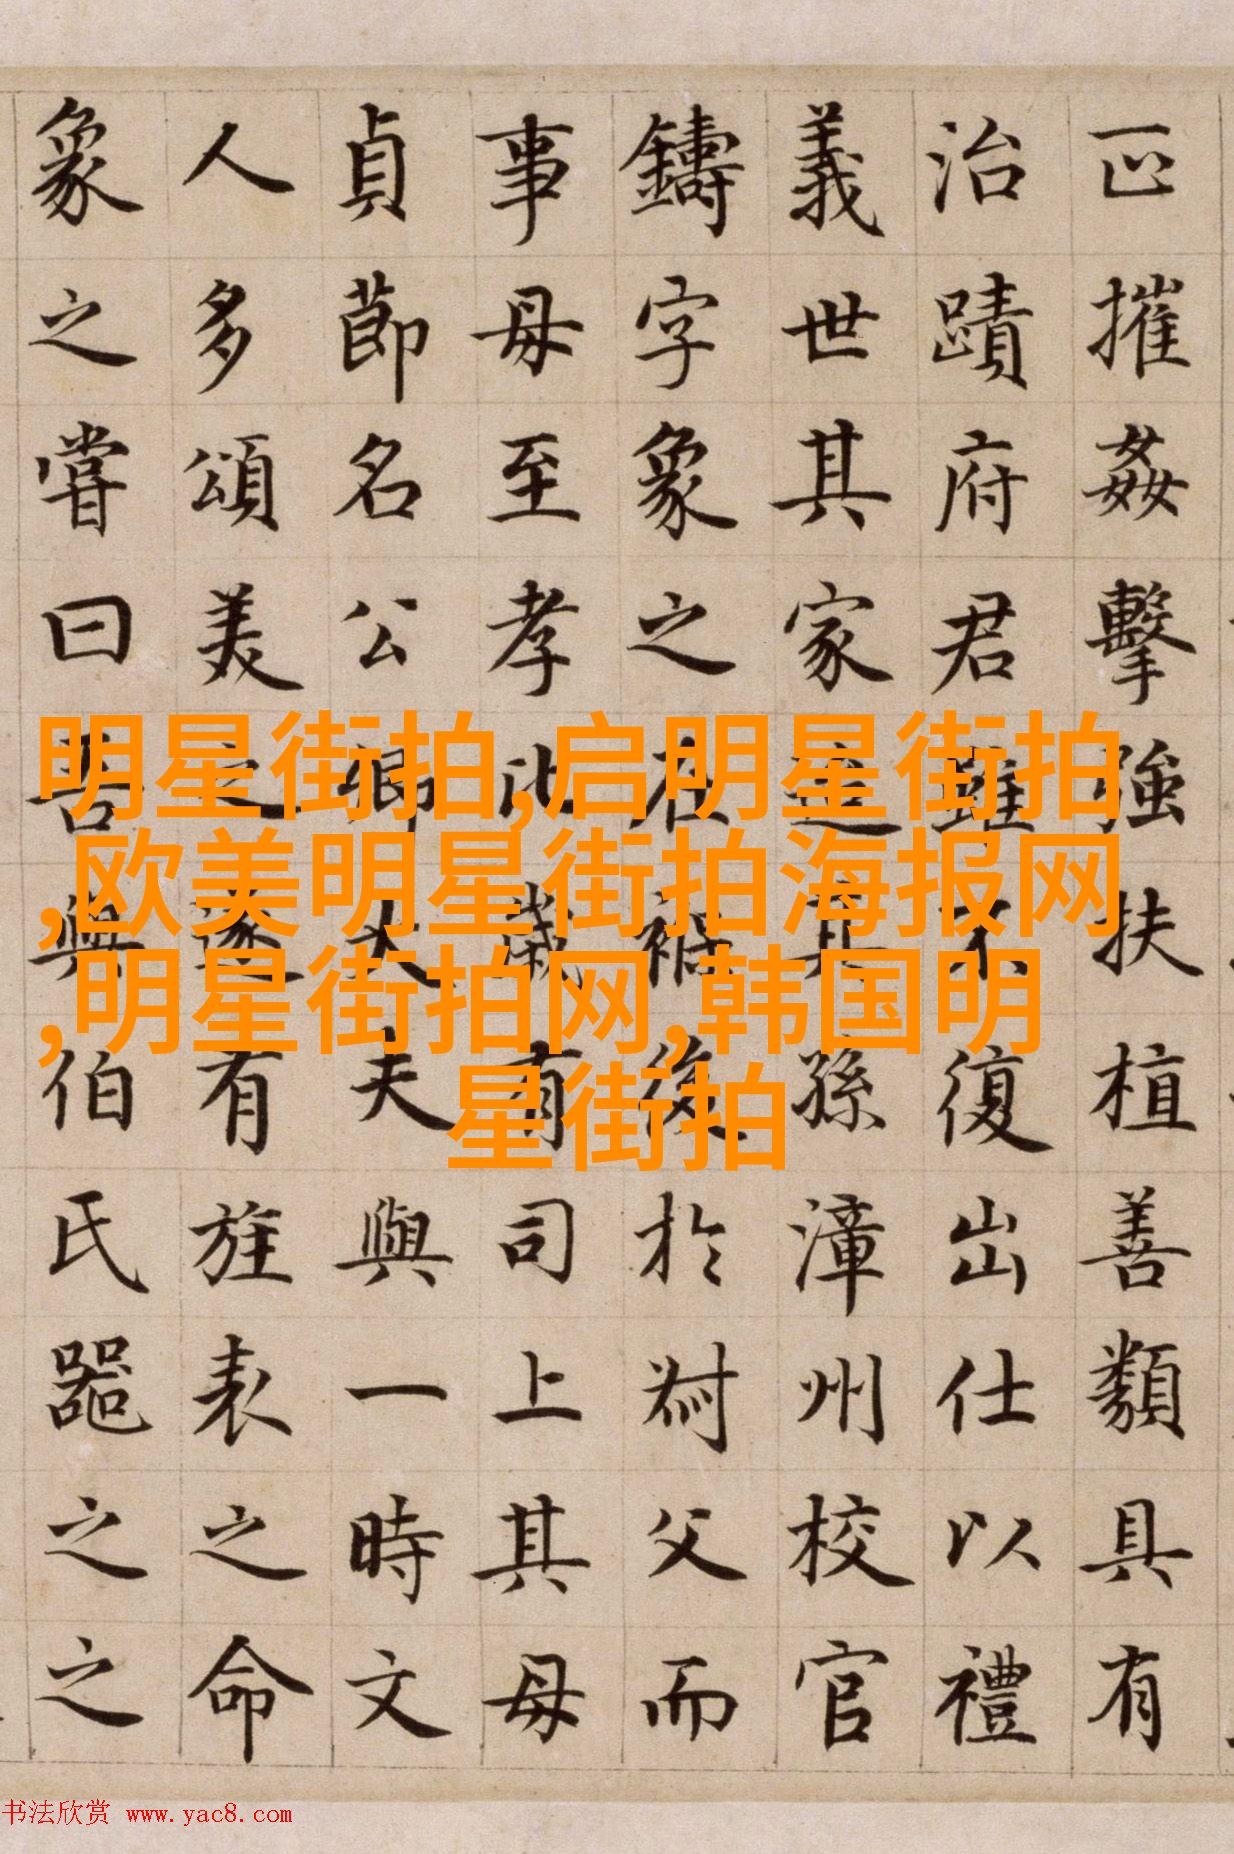 正摧姦擊強扶植善類具有
治蹟府君雖不復出仕以禮
義世其家逮其孫漳州校官
鑄字象之在褓後於父而
事母至孝比歲有司上其母
貞節名公卿大夫與一時文
人多頌美之遂有旌表之命
象之嘗曰吾與伯氏器之之
明星街拍,启明星街拍
,欧美明星街拍海报网
,明星街拍网,韩国明
星街拍
书法欣赏 www.yac8.com